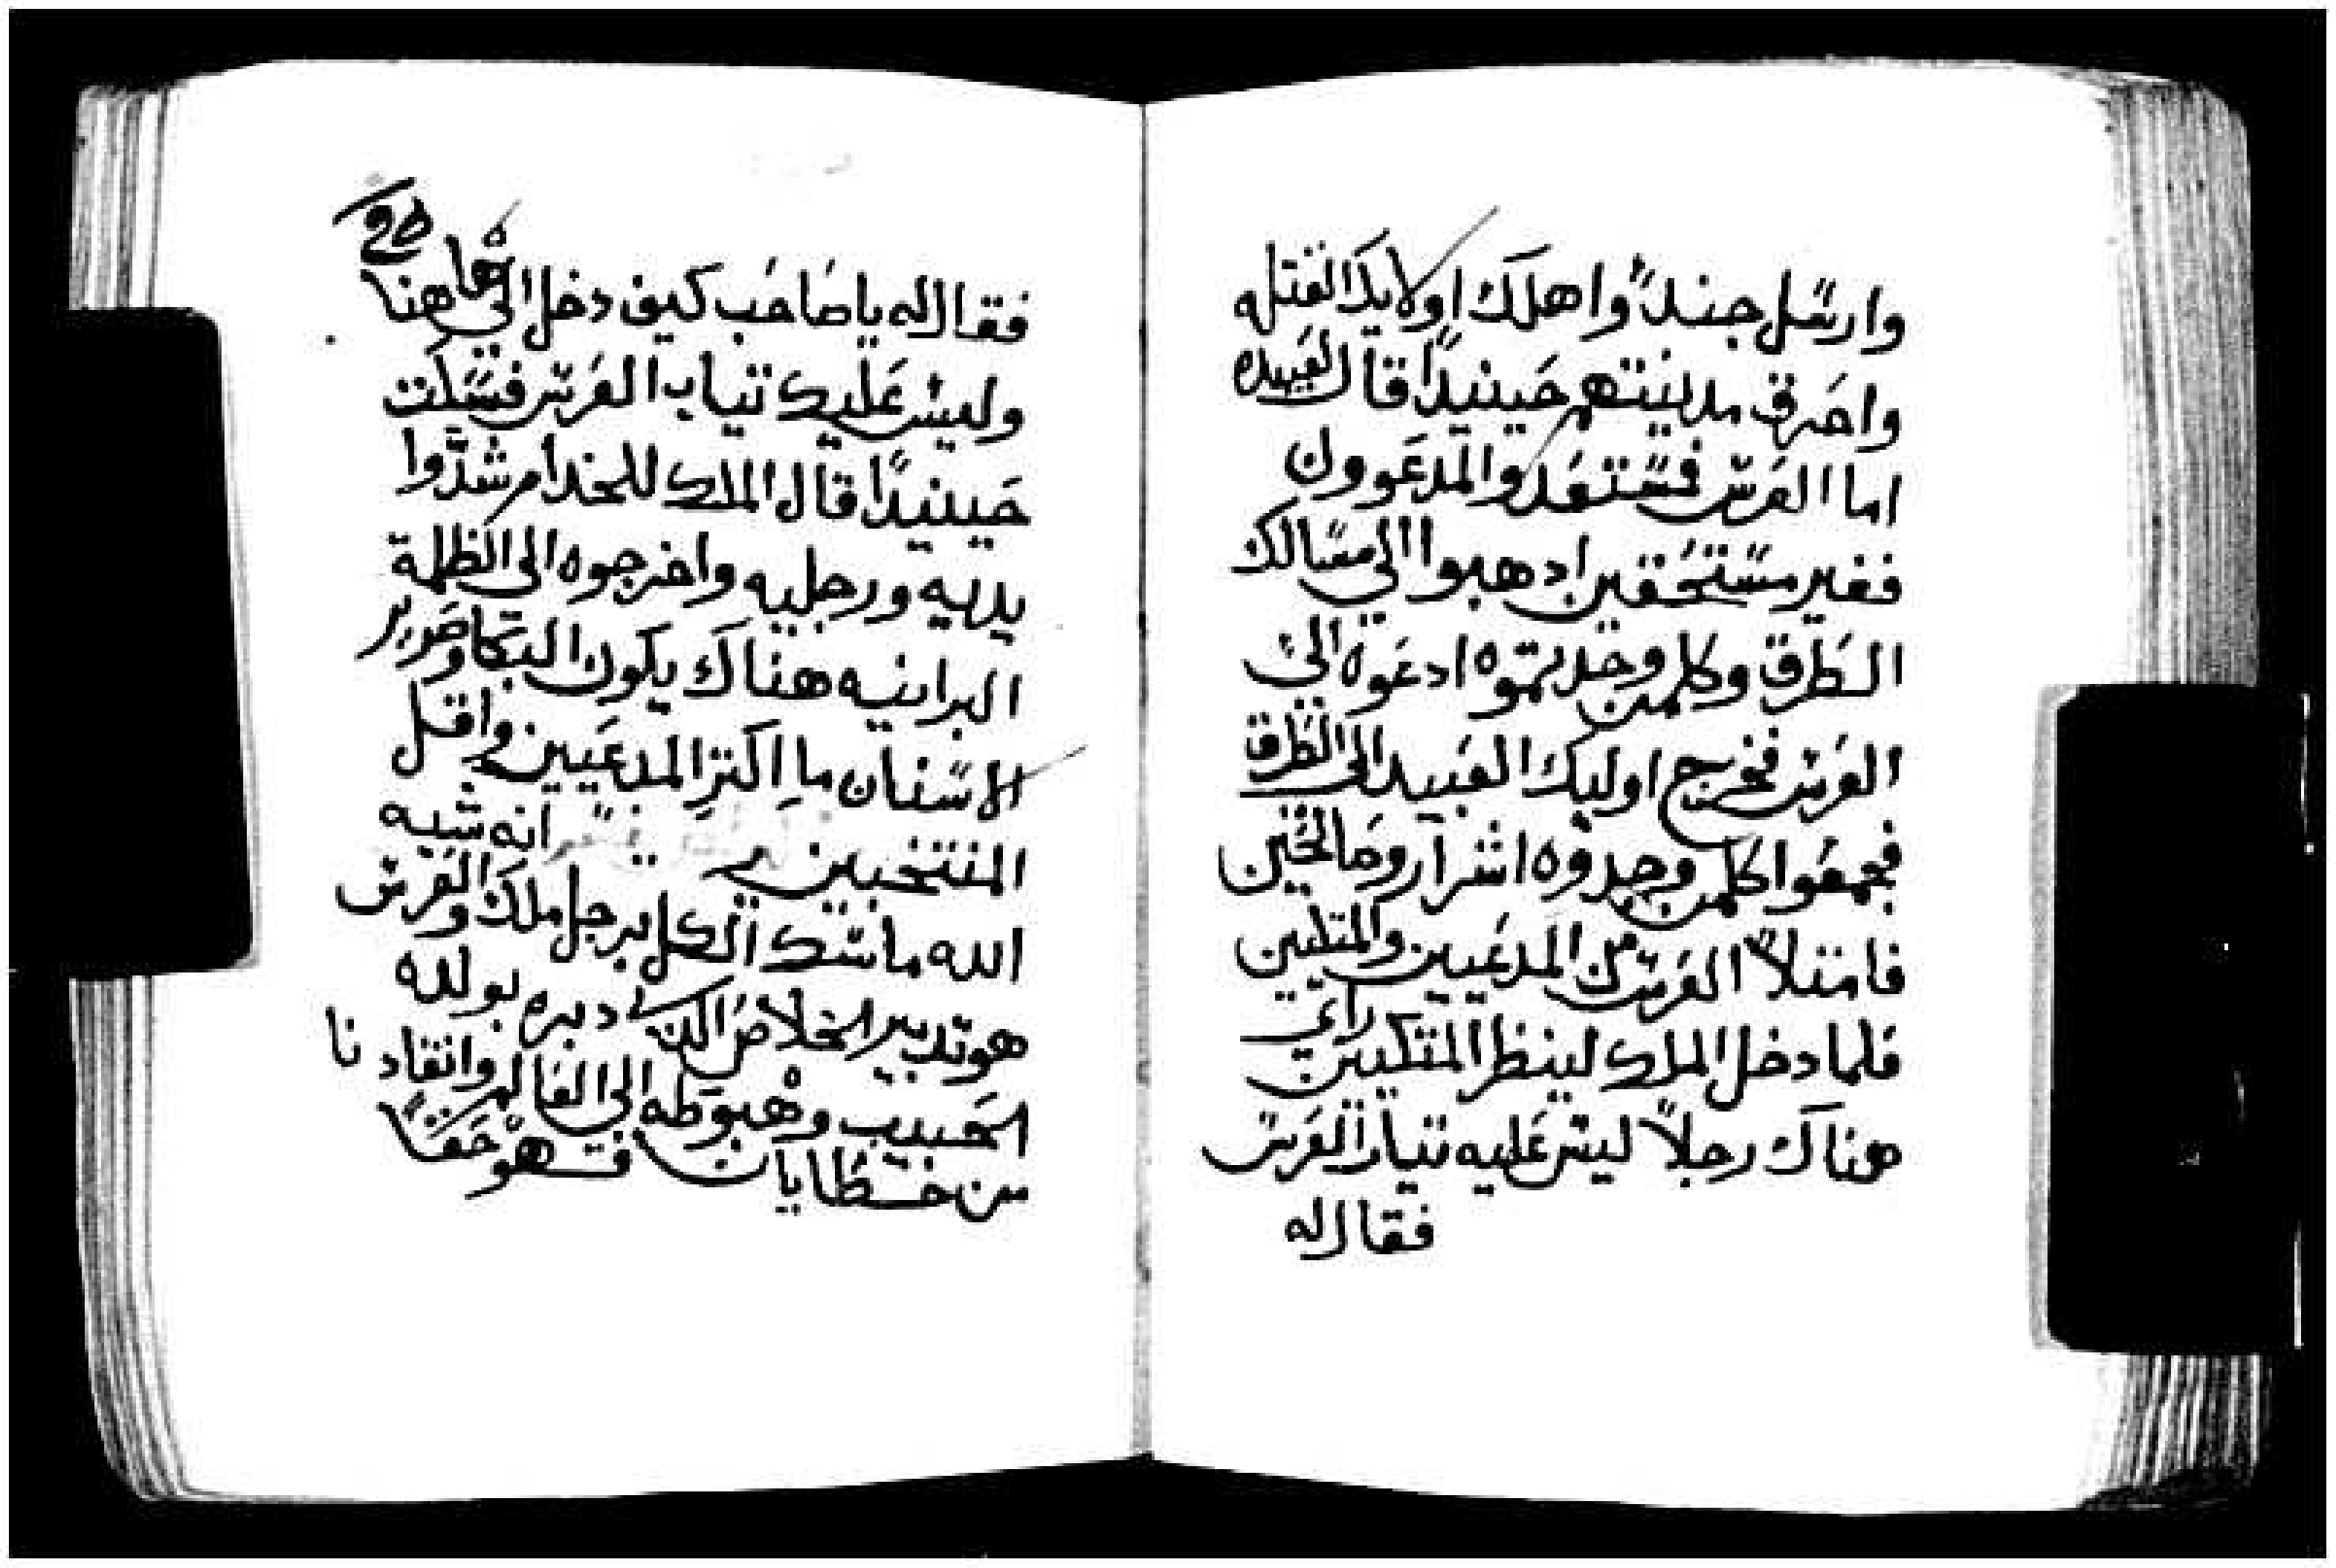 وارسل جندًا واهلك اولايك القتله
واحرق مدينتهم حينيدًا قال لعبيده
اما العرس فمستعد والمدعوون
فغير مستحقين ادهبوا الي مسالك
الطرق وكلمن وجدتموه ادعوه الي
العرس فخرج اوليك العبيد الى الطرق
فجمعوا كلمن وجدوه اشرار وصالحين
فامتلا العرس من المدعيين والمتكيين
فلما دخل الملك لينظر المتكيين راي
هناك رجلاً ليس عليه تياب العرس
فقال له
فقال له يا صاحب كيف دخل الي هاهنا
وليس عليك تياب العرس فسكت
حينيدًا قال الملك للخدام شدّوا
يديه ورجليه واخرجوه الى الظلمة
البرانيه هناك يكون البكا وصرير
الاسنان ما اكتر المدعيين واقل
المنتخبين انه شبه
الله ماسك الكل برجل ملك والعرس
هو تدبير الخلاص الذي دبره بولده
الحبيب وهبوطه الى العالم وانقادنا
من خطايانا فهو حقًا